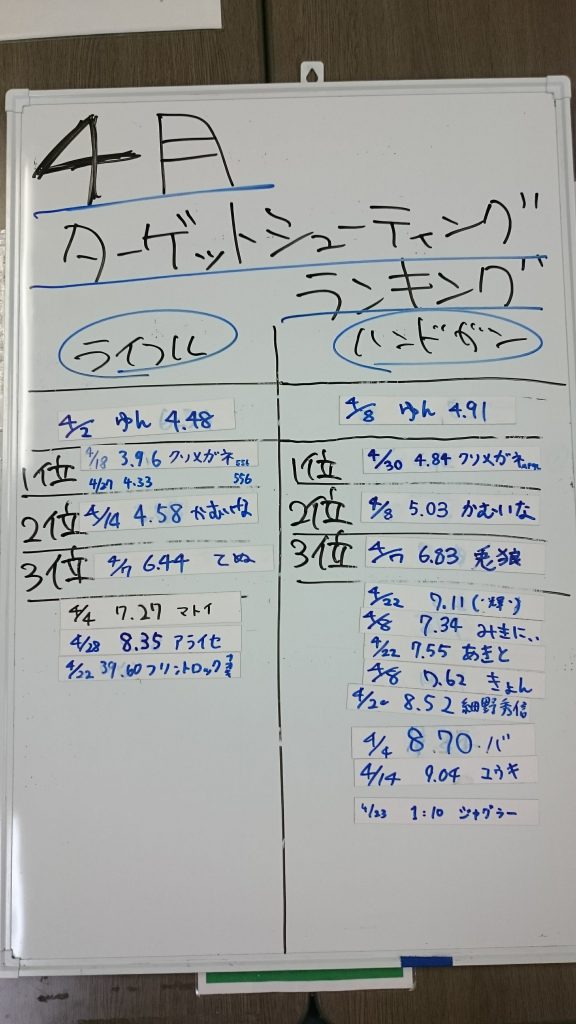 4月
ターゲットシューティング
ランキング
ライフル
4/2 ゆん 4.48
1位 4/18 3.96 クリメガネ 556
4/27 4.33 556
2位 4/14 4.58 かむいな
3位 4/7 6.44 てぬ
4/4 7.27 マトイ
4/28 8.35 アライセ
4/22 39.60 フリントロック
ハンドガン
4/8 ゆん 4.91
1位 4/30 4.84 クリメガネ
2位 4/8 5.03 かむいな
3位 4/7 6.83 兎狼
4/22 7.11 (･輝･)
4/8 7.34 みきにぃ
4/22 7.55 あきと
4/8 7.62 きょん
4/20 8.52 細野秀信
4/4 8.70 バ
4/14 9.04 ユウキ
4/23 1:10 ジャグラー